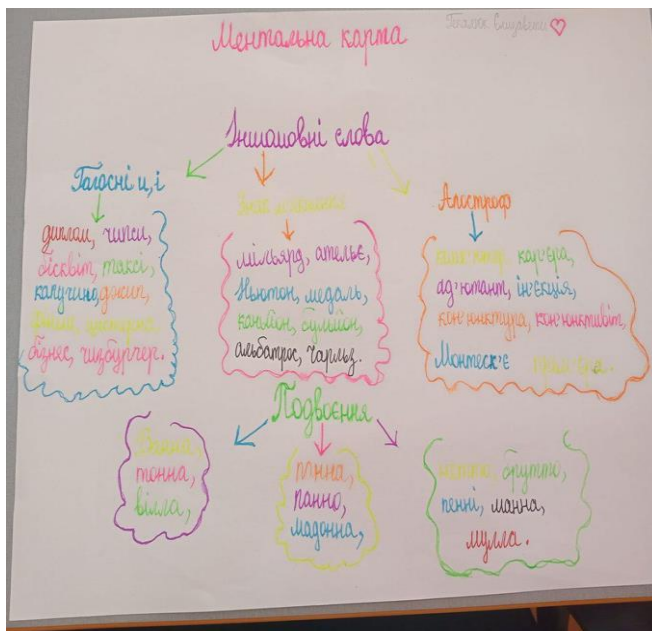 Ментальна карта
Іншомовні слова
Голосні и, і
диплом, чипси,
бісквіт, таксі,
капучино, джип,
фініш, цистерна,
бізнес, чизбургер.
Знак м'якшення
мільярд, ательє,
Ньютон, медаль,
каньйон, бульйон,
альбатрос, Чарльз.
Апостроф
комп'ютер, кар'єра,
ад'ютант, ін'єкція,
кон'юнктура, кон'юнктивіт,
Монтеск'є прем'єра.
Подвоєння
Ванна,
тонна,
вілла,
панна,
панно,
мадонна,
нетто, брутто,
пенні, манна,
мулла.